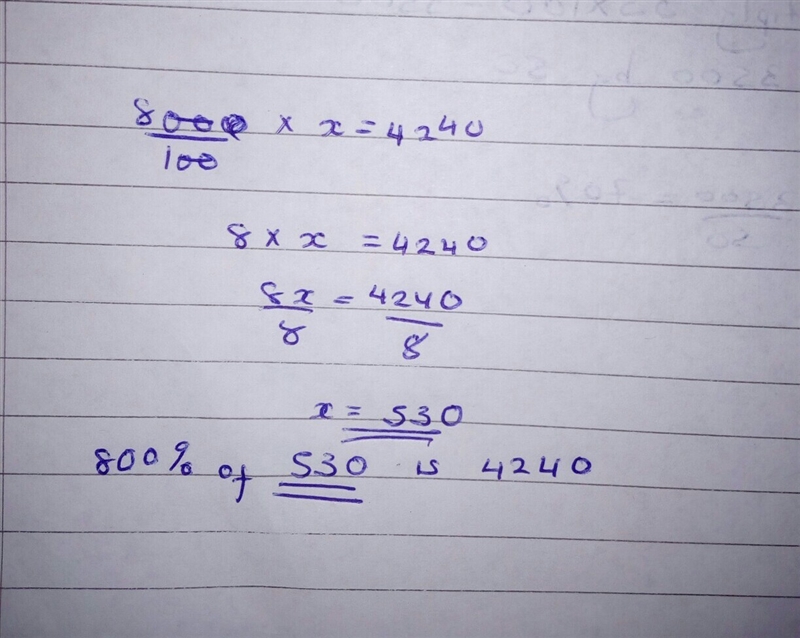 800 × x = 4240
100
8 × x = 4240
8x = 4240
8 8
x = 530
800% of 530 is 4240